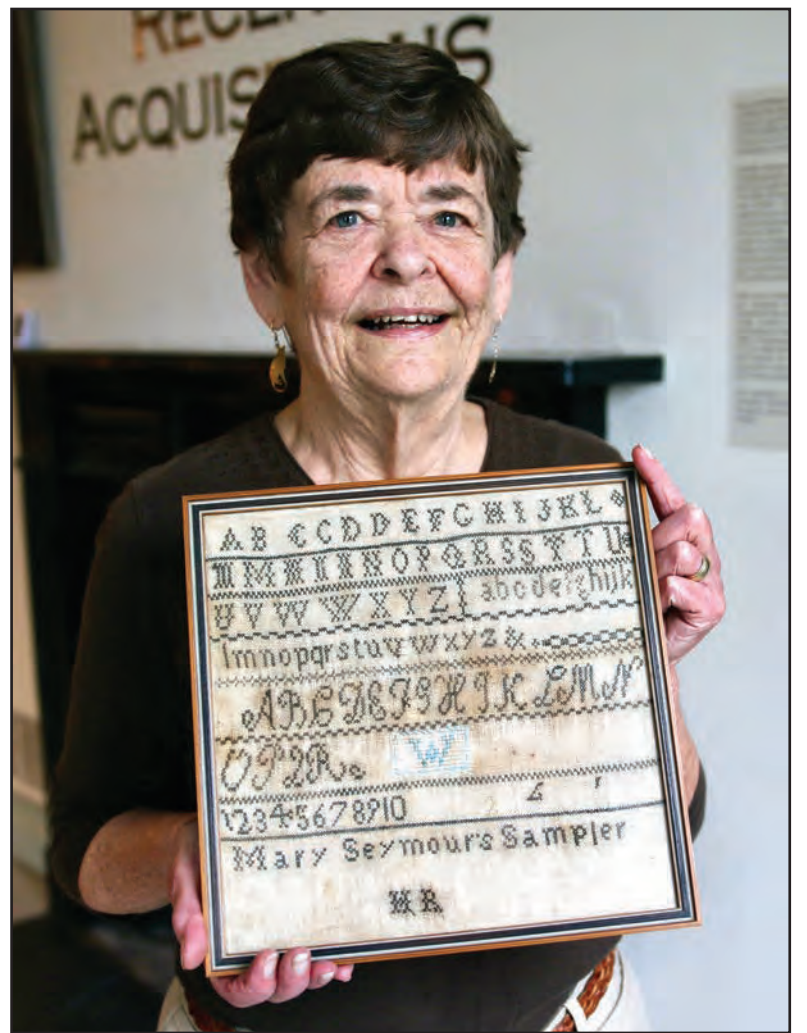 ACQUIS
A B C C D D E F G H I J K L
M M N N N N O P Q R S S T T U
U V W W X Y Z abcdefghijk
lmnopqrstuvwxyz &
A B C D E F G H I J K L M N
O P Q R
W
12345678910
Mary Seymour's Sampler
H R